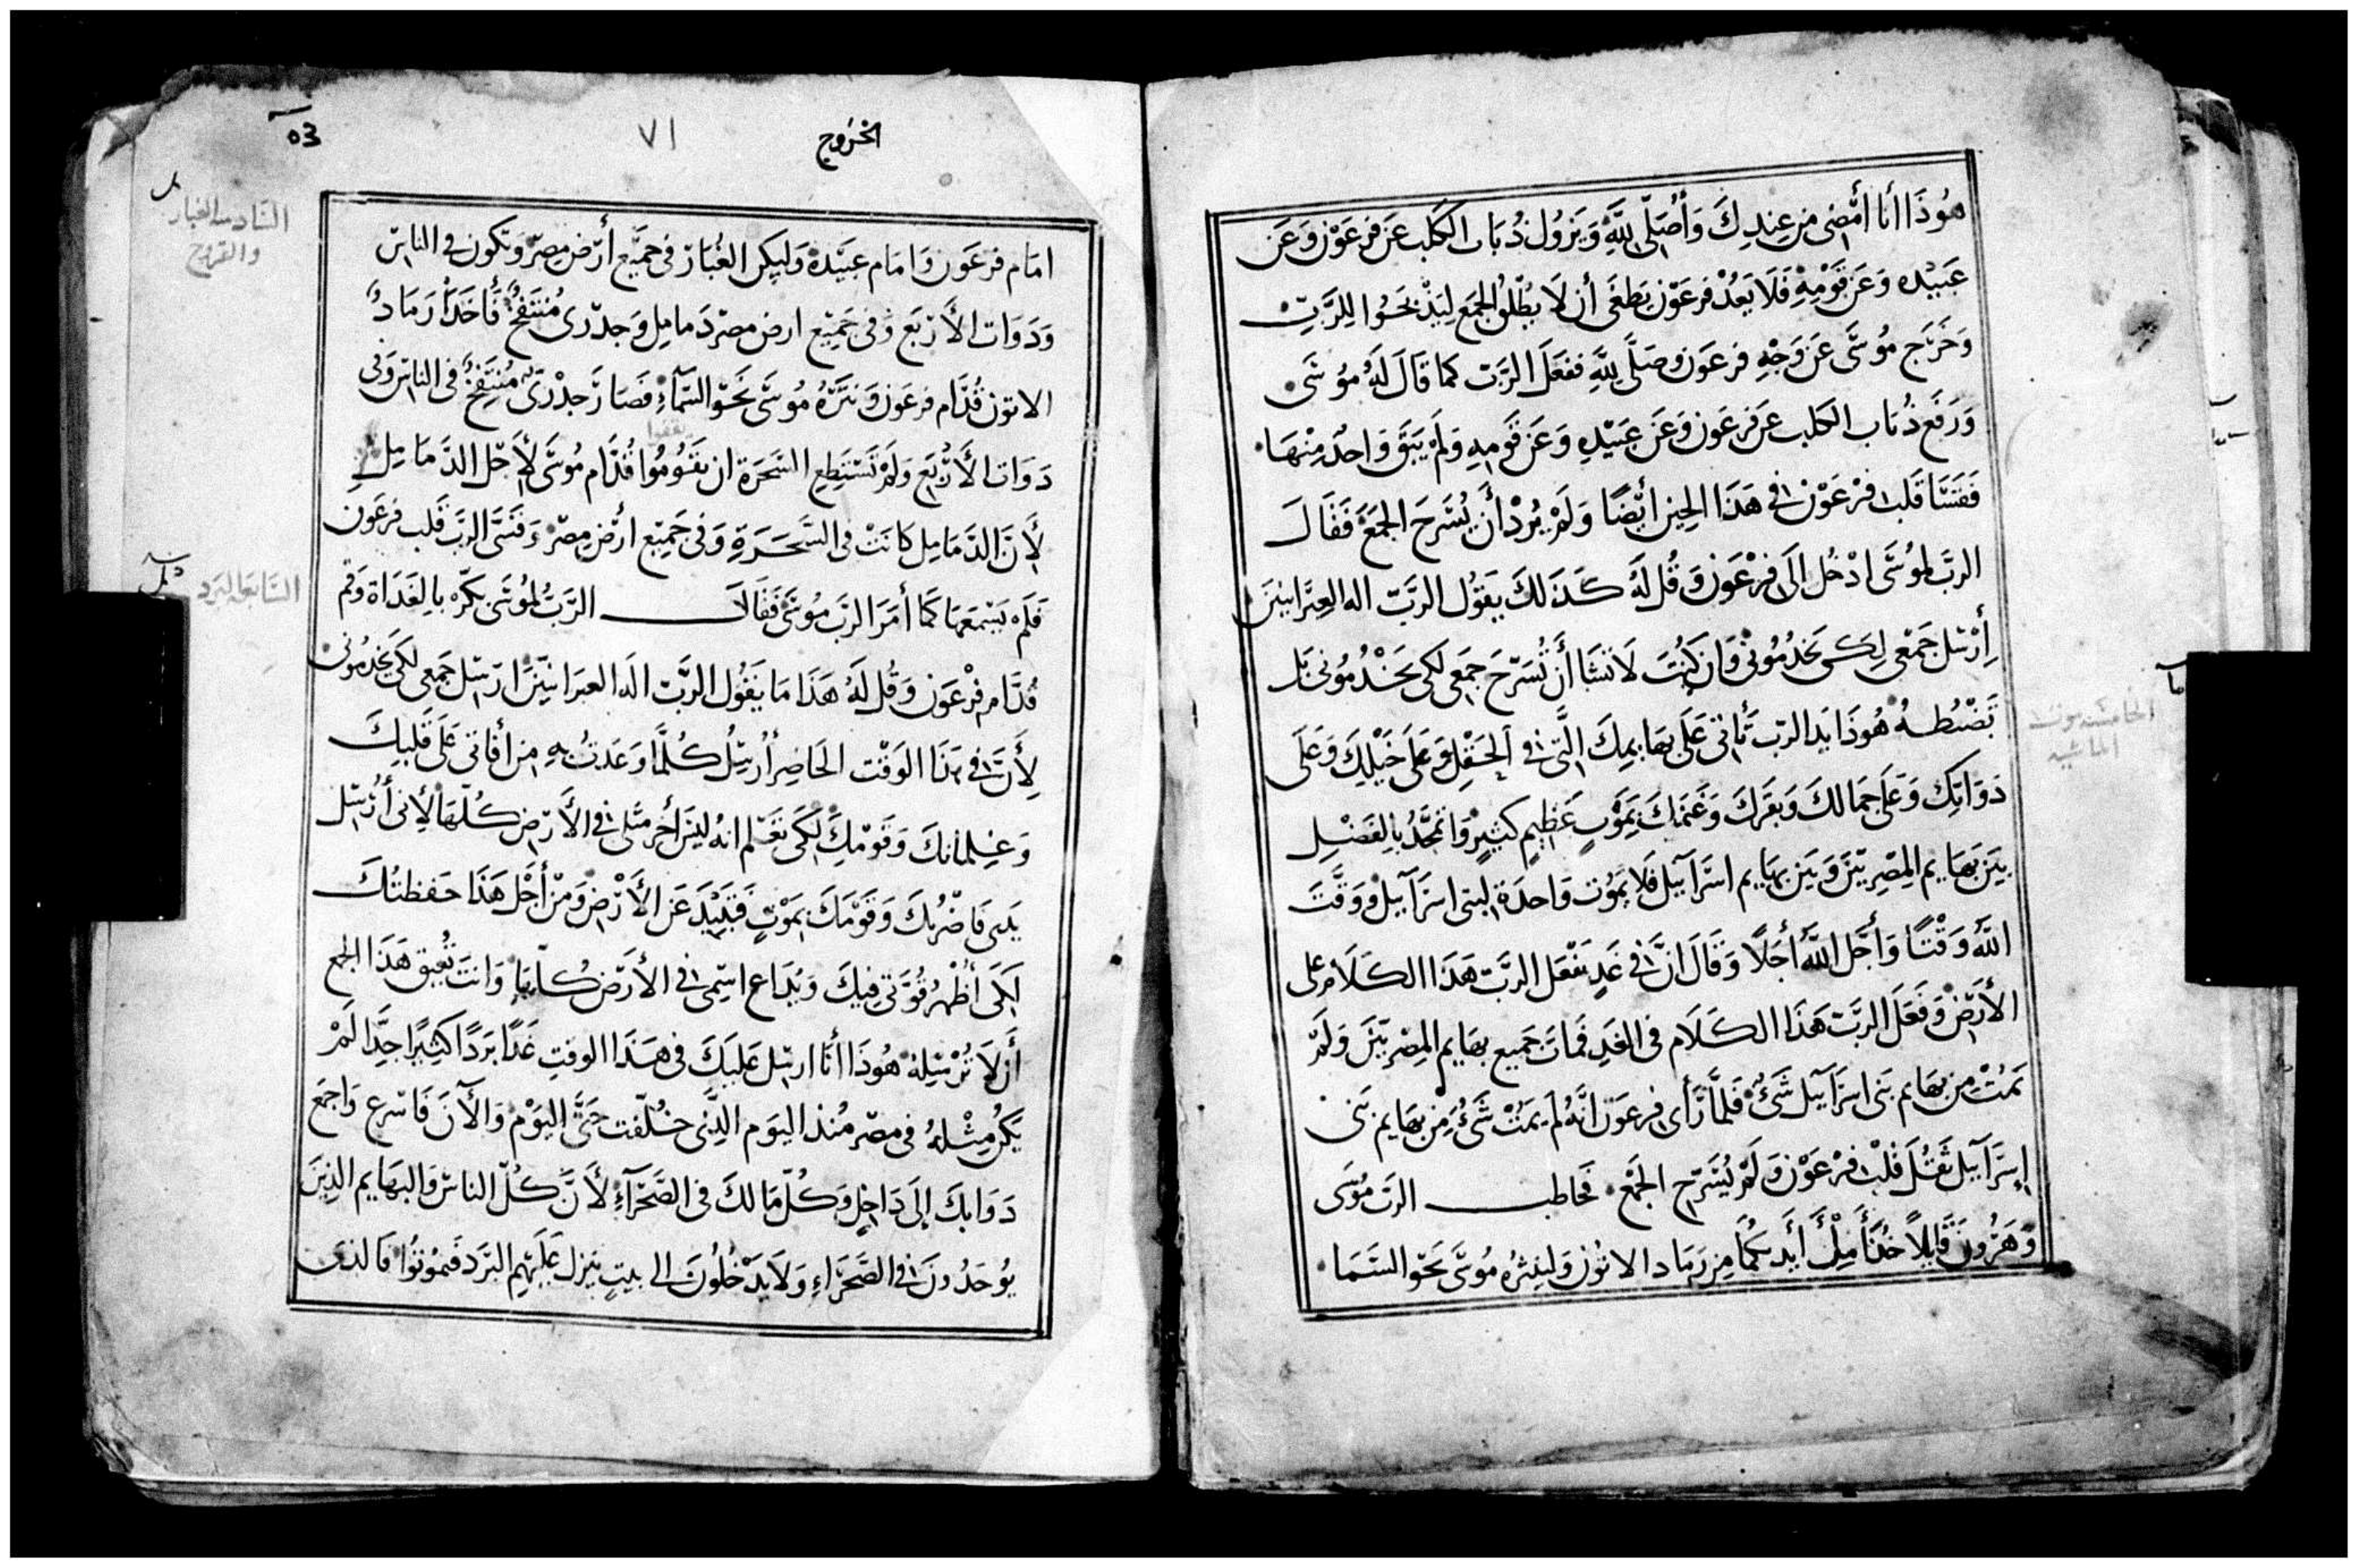 هُوذَا أنَا أمْضِى مِن عِندِكَ وَأُصَلّى لِلَّهِ وَيَزُول ذُبَاب الكَلب عَن فِرعَوْن وَعَن
عَبيْدِه وَعَن قَوْمِهِ فَلَا يَعُدْ فرعَوْن يَطغَى أن لَا يُطْلِقُ الجمَع لِيَذْبَحَوُا لِلرَّبّ
وَخَرَج مُوسَى عَن وَجْهِ فرعَون وصَلَّى لِلَّهِ ففعَلَ الرّبَ كما قَالَ لَهُ مُوسَى
وَرَفَع ذُبَاب الكلب عَن فرعَون وَعَن عَبيْدِهِ وَعَن قَومِهِ وَلَمْ يَبَق وَاحدٌ مِنْهَا
فَقَسَّا قَلب فرْعَوْن فى هَذَا الحِين أيْضًا وَلَمْ يُرْد أَن يُسَّرحَ الجمَعَ فَقَالَ
الربَّ لمُوسَّى ادْخُل الَى فِرْعَون وَقُل لَهُ كَذَلكَ يَقوُل الربّ اله العِبَرانيين
أِرْسَل جَمْعى لِكى يَخدُمُونى وَان كُنتَ لَا تَشَا أَنْ تُسَرّحَ جمَعى لكى يَخْدُمُونى بَل
تَضْبُطهُ هُوذَا يَد الربّ تَأتى عَلَى بهَايمِكَ الَّتى فى الحَقْل وَعَلَى خَيْلِكَ وَعَلَى
دَوَابّكِ وَعَلَى جمَالكَ وَبقَركَ وَغَنَمكَ بمَوْتٍ عَظِيمٍ كثيرٍ وَاتمَجَّدُ بالفَضْلِ
بيَن بَهَايم المِصْرِيّينَ وَبَين بهَايم اسَرآييل فَلَا يمَوُت وَاحدَة لبنى اسرَآييل وَوَقَّتَ
اللَّهُ وَقْتًا وَأجَّل اللَّهُ أجَلًا وَقَالَ انَّ فى غَدٍ يَفْعَل الربَّ هَذَا الكَلَام على
الأرَضْ وَفَعَلَ الربَّ هَذَا الكَلَام فى الغَدِ فمَاتَ جَمِيع بهَايم المِصْريّينَ وَلَمْ
يمَتُ من بهَايم بَنى اسرَآييل شَىٌ فَلمَّا رَأى فرعَون انَّهُ لم يمَتْ شَىٌ مِن بهَايم بَنى
إسرَآييل ثَقُلَ قَلبْ فرْعَوْن وَلَمْ يُسَّرح الجمَعْ فخاطب الربَ مُوسَى
وَهَرُونَ قَايلًا خُذَا مِلْ أيْديكُمَا مِن رَمَاد الاتوُن وَلينثرهُ مُوسَّى نَحْو السَمَا
الخامسه موت
الماشيه
الخرَوج
٧١
٥٣
امَام فرعَون وَامَام عَبيْدهْ وَليكن الغُبَار فى جمَيع أرَض مِصْر وَتكون فى الناس
وَدَوَات الأرْبَع وَفى جَميِع ارض مصر دَمامِل وَجدرى مُنتَفخٌ فَأخَذَا رَمَادُ
الاتون قُدَّام فرعَون وَنَثَرهُ مُوسَّى نَحَو السَّمآءِ فَصَارَ جدْرىٌ مُنتَفِخٌ فى الناس وَفى
دَوَات الأرْبَع وَلَمْ تَسْتطِع السَّحرَة ان يقَومُوُا قُدَّام مُوسَّى لأَجْل الدَّمَامِلِ
يقفوا
لأنَّ الدَمَامِل كانَتْ فى السَّحَرَةِ وَفى جَميِع ارْض مِصْر وَقَسَّى الربَّ قَلب فرعَون
فَلمْ يَسْمعَهَمَا كمَا أمَرَ الربَ مُوسَى فَقَالَ الرّبُ لمُوسَى بَكّرْ بالغَدَاة وَقم
قُدَّام فرْعَون وَقُل لَهُ هَذَا مَا يَقُول الربَّ الَه العبرانيّين ارَسَل جَمعى لكى يخَدِمُونى
لأَنّ فى هذَا الوَقت الحَاضِر أُرسِل كُلمَّا وَعَدتُ بهِ مِن أفاتى عَلَى قَلبِكَ
وَغِلمانكَ وَقَوْمكَ لِكَى تَعَلم انهُ ليسَ أخر مثلى فى الأرَض كُلّهَا لأنى أُرْسِل
يَدىَ فَاضْربكَ وَقَوْمَكَ بمَوْتٍ فَتبيْدَ عَن الأرْض وَمنْ أجْل هَذَا حَفظتُكَ
لكَى أُظْهرُ قُوَّتى فِيكَ وَيُذَاع اسْمِى فى الأرَض كُلّهَا وَانتَ تُعيق هَذَا الجمع
أَن لَا تُرْسِلهْ هُوذَا أنَا ارسِل عَليكَ فى هَذَا الوقتِ غَدًا بَرَدًا كثيرًا جِدًّا لَمْ
يَكُن مِثْلهُ فى مصْر مُنذ اليوَم الذِّى خُلّقت حَتَّى اليَوْم وَالآنَ فَاسْرع وَاجمَع
دَوَابكَ إلَى دَاخِلٍ وَكُلّمَا لكَ فى الصَّحْرآءِ لأَنَّ كُلّ الناسْ وَالبهَايم الذينَ
يوُجَدُونَ فى الصَّحَرَاءِ وَلَا يَدْخُلُونَ الى بيتٍ يَنزل عَليَهِم البَرَد فَموُتُوا فَالذى
السَّادسه الغبار
والقروح
السَّابعه البَرَد